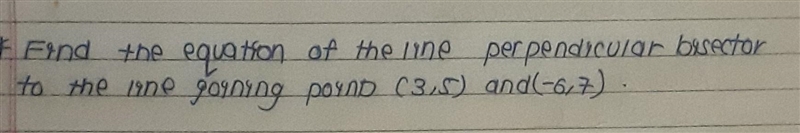 Find the equation of the line perpendicular bisector
to the line joining point (3,5) and (-6,7).